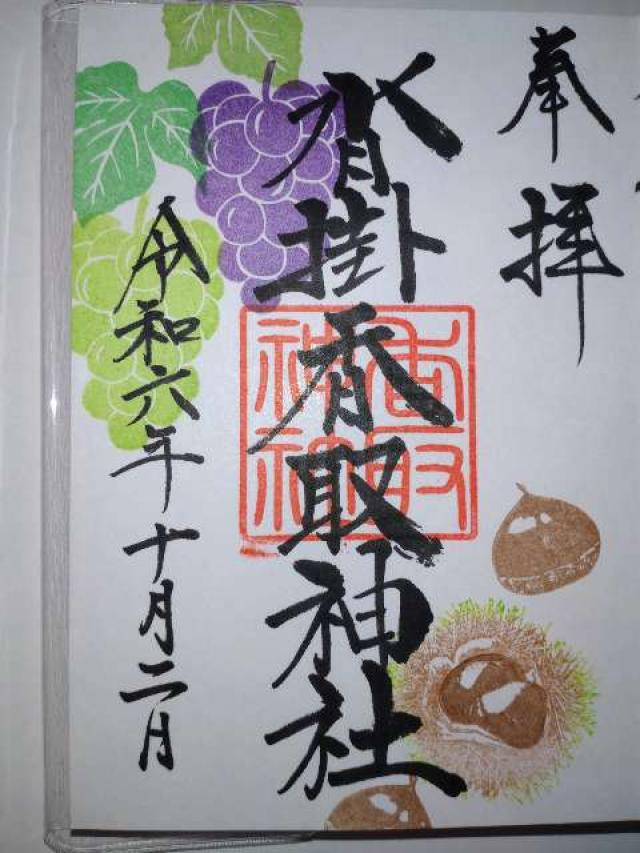 奉拝
沓掛香取神社
香取
神社
令和六年十月二日